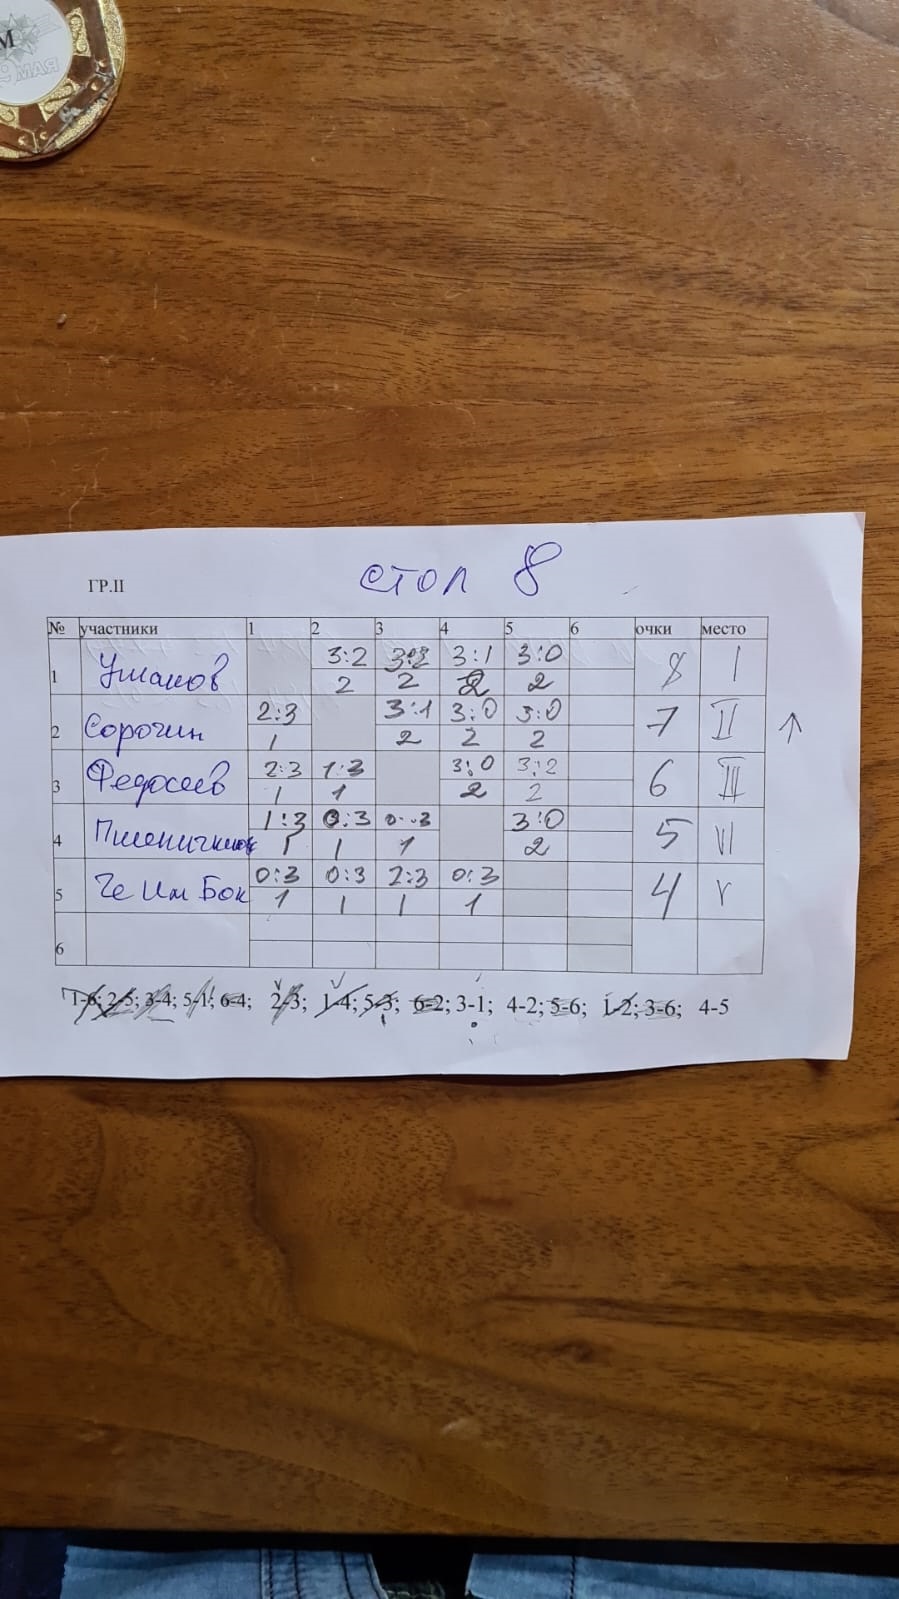 М
ГР.II
стол 8
№ участники 1 2 3 4 5 6 очки место
1 Ушаков 3:2 3:2 3:1 3:0 8 I
2 2 2 2
2 Сорочин 2:3 3:1 3:0 3:0 7 II ↑
1 2 2 2
3 Федосеев 2:3 1:3 3:0 3:2 6 III
1 1 2 2
4 1:3 0:3 0:3 3:0 5 VI
1 1 1 2
5 Че Им Бок 0:3 0:3 2:3 0:3 4 V
1 1 1 1
6
1-6; 2-5; 3-4; 5-1; 6-4; 2-3; 1-4; 5-3; 6-2; 3-1; 4-2; 5-6; 1-2; 3-6; 4-5